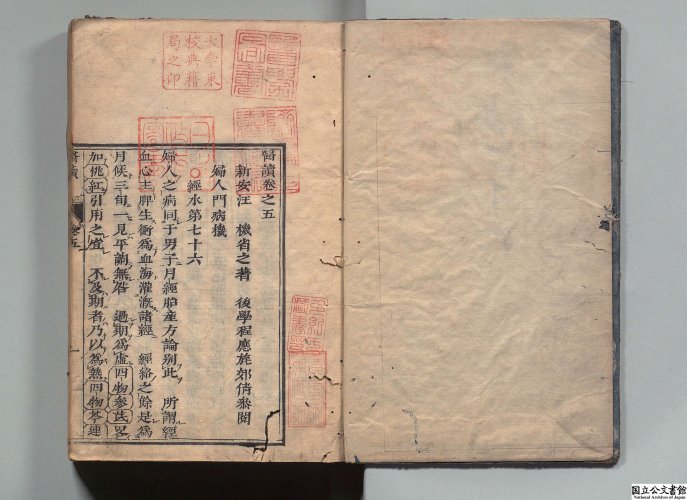 醫讀卷之五
新安汪　機省之著　後學程應旄郊倩叅閱
婦人門病機
○經水第七十六
婦人之病同于男子月經胎產方論别此　所謂經
血心主脾生衝為血海灌溉諸經　經絡之餘是為
月候三旬一見平調無咎　過期為虛四物參芪畧
加桃紅引用之宜　不及期者乃以為熱四物芩連
大學東
校典籍
局之印
国立公文書館
National Archives of Japan